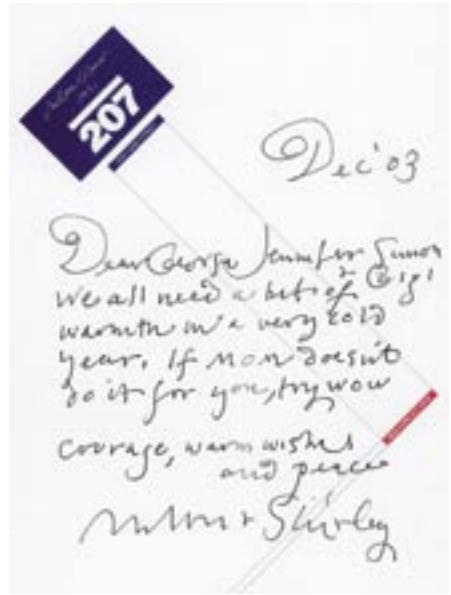 207
Dec '03
Dear George Jennifer Simon
we all need a bit of & Gigi
warmth in a very cold
year. If MOM doesn't
do it for you, try WOW
courage, warm wishes
and peace
Milton + Shirley